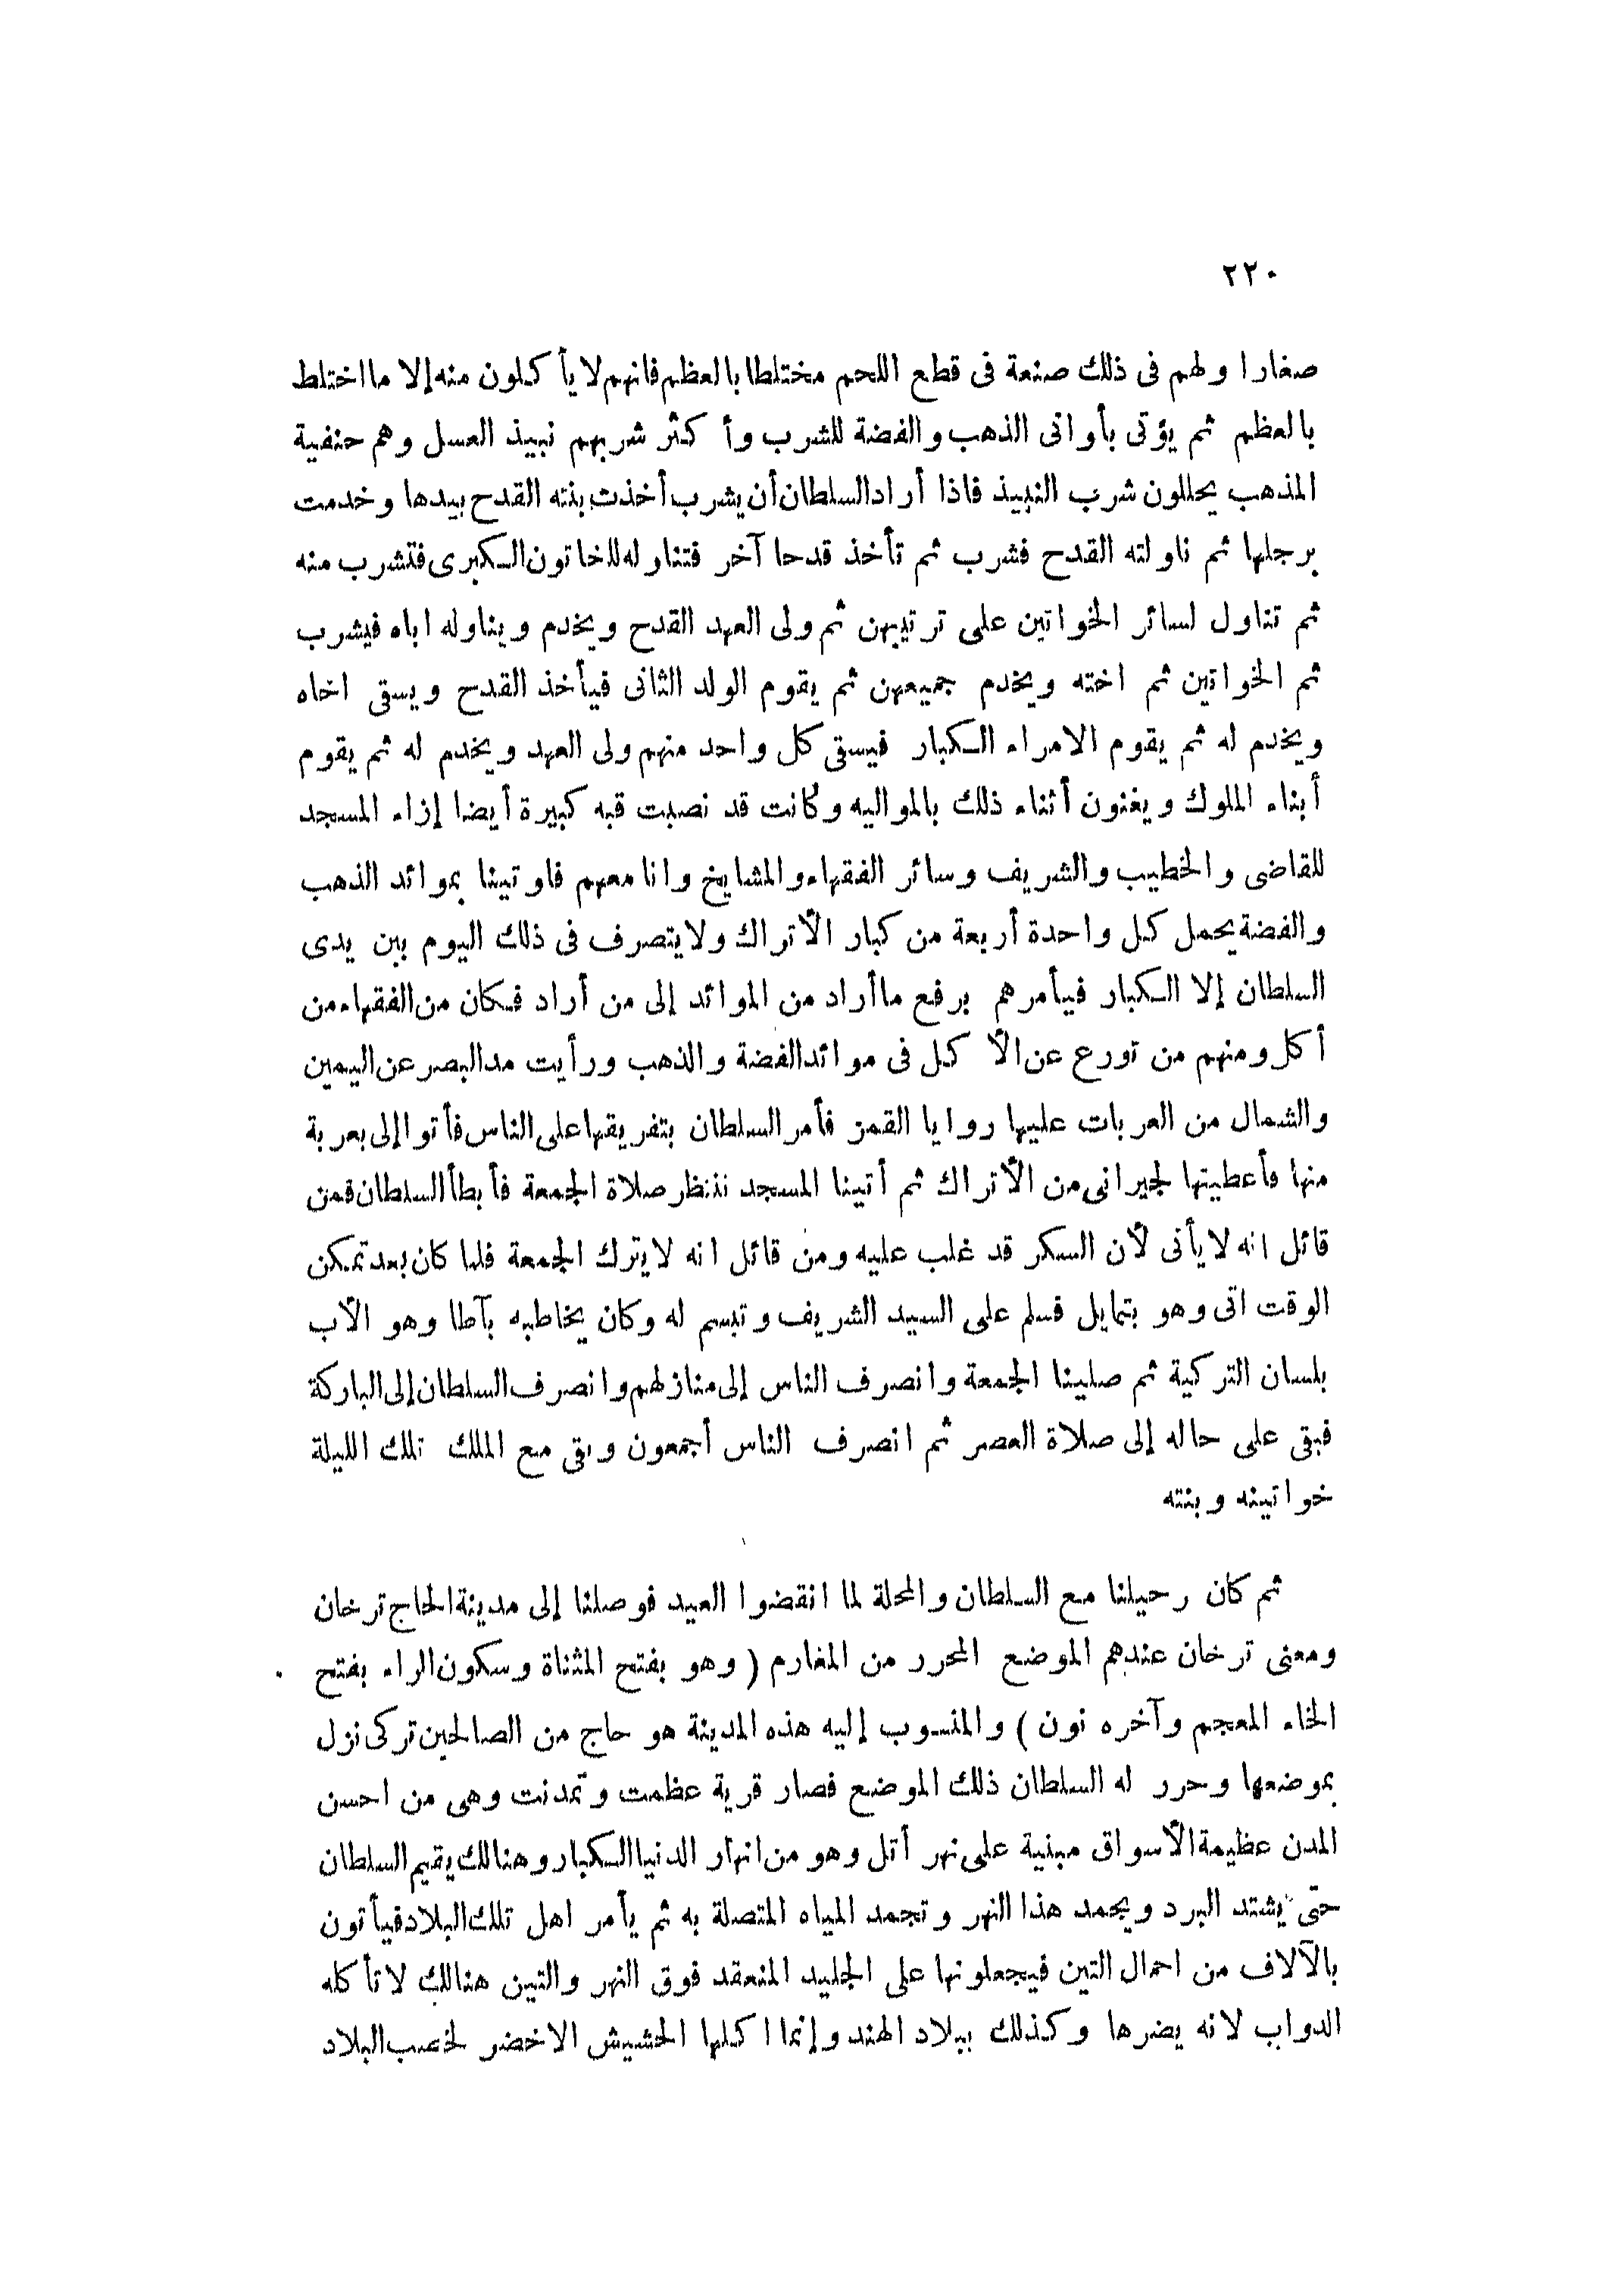 ٢٢٠
صغارا ولهم فى ذلك صنعة فى قطع اللحم مختلطا بالعظم فانهم لا يأكلون منه إلا ما اختلط
بالعظم ثم يؤتى بأوانى الذهب والفضة للشرب وأكثر شربهم نبيذ العسل وهم حنفية
المذهب يحللون شرب النبيذ فاذا أراد السلطان أن يشرب أخذت بنته القدح بيدها وخدمت
برجلها ثم ناولته القدح فشرب ثم تأخذ قدحا آخر فتناوله للخاتون الكبرى فتشرب منه
ثم تناول لسائر الخواتين على ترتيبهن ثم ولى العهد القدح ويخدم ويناوله اباه فيشرب
ثم الخواتين ثم اخته ويخدم جميعهن ثم يقوم الولد الثانى فيأخذ القدح ويسقى اخاه
ويخدم له ثم يقوم الامراء الكبار فيسقى كل واحد منهم ولى العهد ويخدم له ثم يقوم
أبناء الملوك ويغنون أثناء ذلك بالمواليه وكانت قد نصبت قبه كبيرة أيضا إزاء المسجد
للقاضى والخطيب والشريف وسائر الفقهاء والمشايخ وانا معهم فاوتينا بموائد الذهب
والفضة يحمل كل واحدة أربعة من كبار الأتراك ولا يتصرف فى ذلك اليوم بين يدى
السلطان إلا الكبار فيأمرهم برفع ما أراد من الموائد إلى من أراد فكان من الفقهاء من
أكل ومنهم من تورع عن الأكل فى موائد الفضة والذهب ورأيت مد البصر عن اليمين
والشمال من العربات عليها روايا القمز فأمر السلطان بتفريقها على الناس فأتوا إلى بعربة
منها فأعطيتها لجيرانى من الأتراك ثم أتينا المسجد ننتظر صلاة الجمعة فأبطأ السلطان فمن
قائل انه لا يأتى لأن السكر قد غلب عليه ومن قائل انه لا يترك الجمعة فلما كان بعد تمكن
الوقت اتى وهو يتمايل فسلم على السيد الشريف وتبسم له وكان يخاطبه بآطا وهو الأب
بلسان التركية ثم صلينا الجمعة وانصرف الناس إلى منازلهم وانصرف السلطان إلى الباركة
فبقى على حاله إلى صلاة العصر ثم انصرف الناس أجمعون وبقى مع الملك تلك الليلة
خواتينه وبنته
ثم كان رحيلنا مع السلطان والمحلة لما انقضوا العيد فوصلنا إلى مدينة الحاج ترخان
ومعنى ترخان عندهم الموضع المحرر من المغارم ( وهو بفتح المثناة وسكون الراء بفتح
الخاء المعجم وآخره نون ) والمنسوب إليه هذه المدينة هو حاج من الصالحين تركى نزل
بموضعها وحرر له السلطان ذلك الموضع فصار قرية عظمت وتمدنت وهى من احسن
المدن عظيمة الأسواق مبنية على نهر أتل وهو من انهار الدنيا الكبار وهنالك يقيم السلطان
حتى يشتد البرد ويجمد هذا النهر وتجمد المياه المتصلة به ثم يأمر اهل تلك البلاد فيأتون
بالآلاف من احمال التين فيجعلونها على الجليد المنعقد فوق النهر والتين هنالك لا تأكله
الدواب لانه يضرها وكذلك ببلاد الهند وإنما اكلها الحشيش الاخضر لخصب البلاد